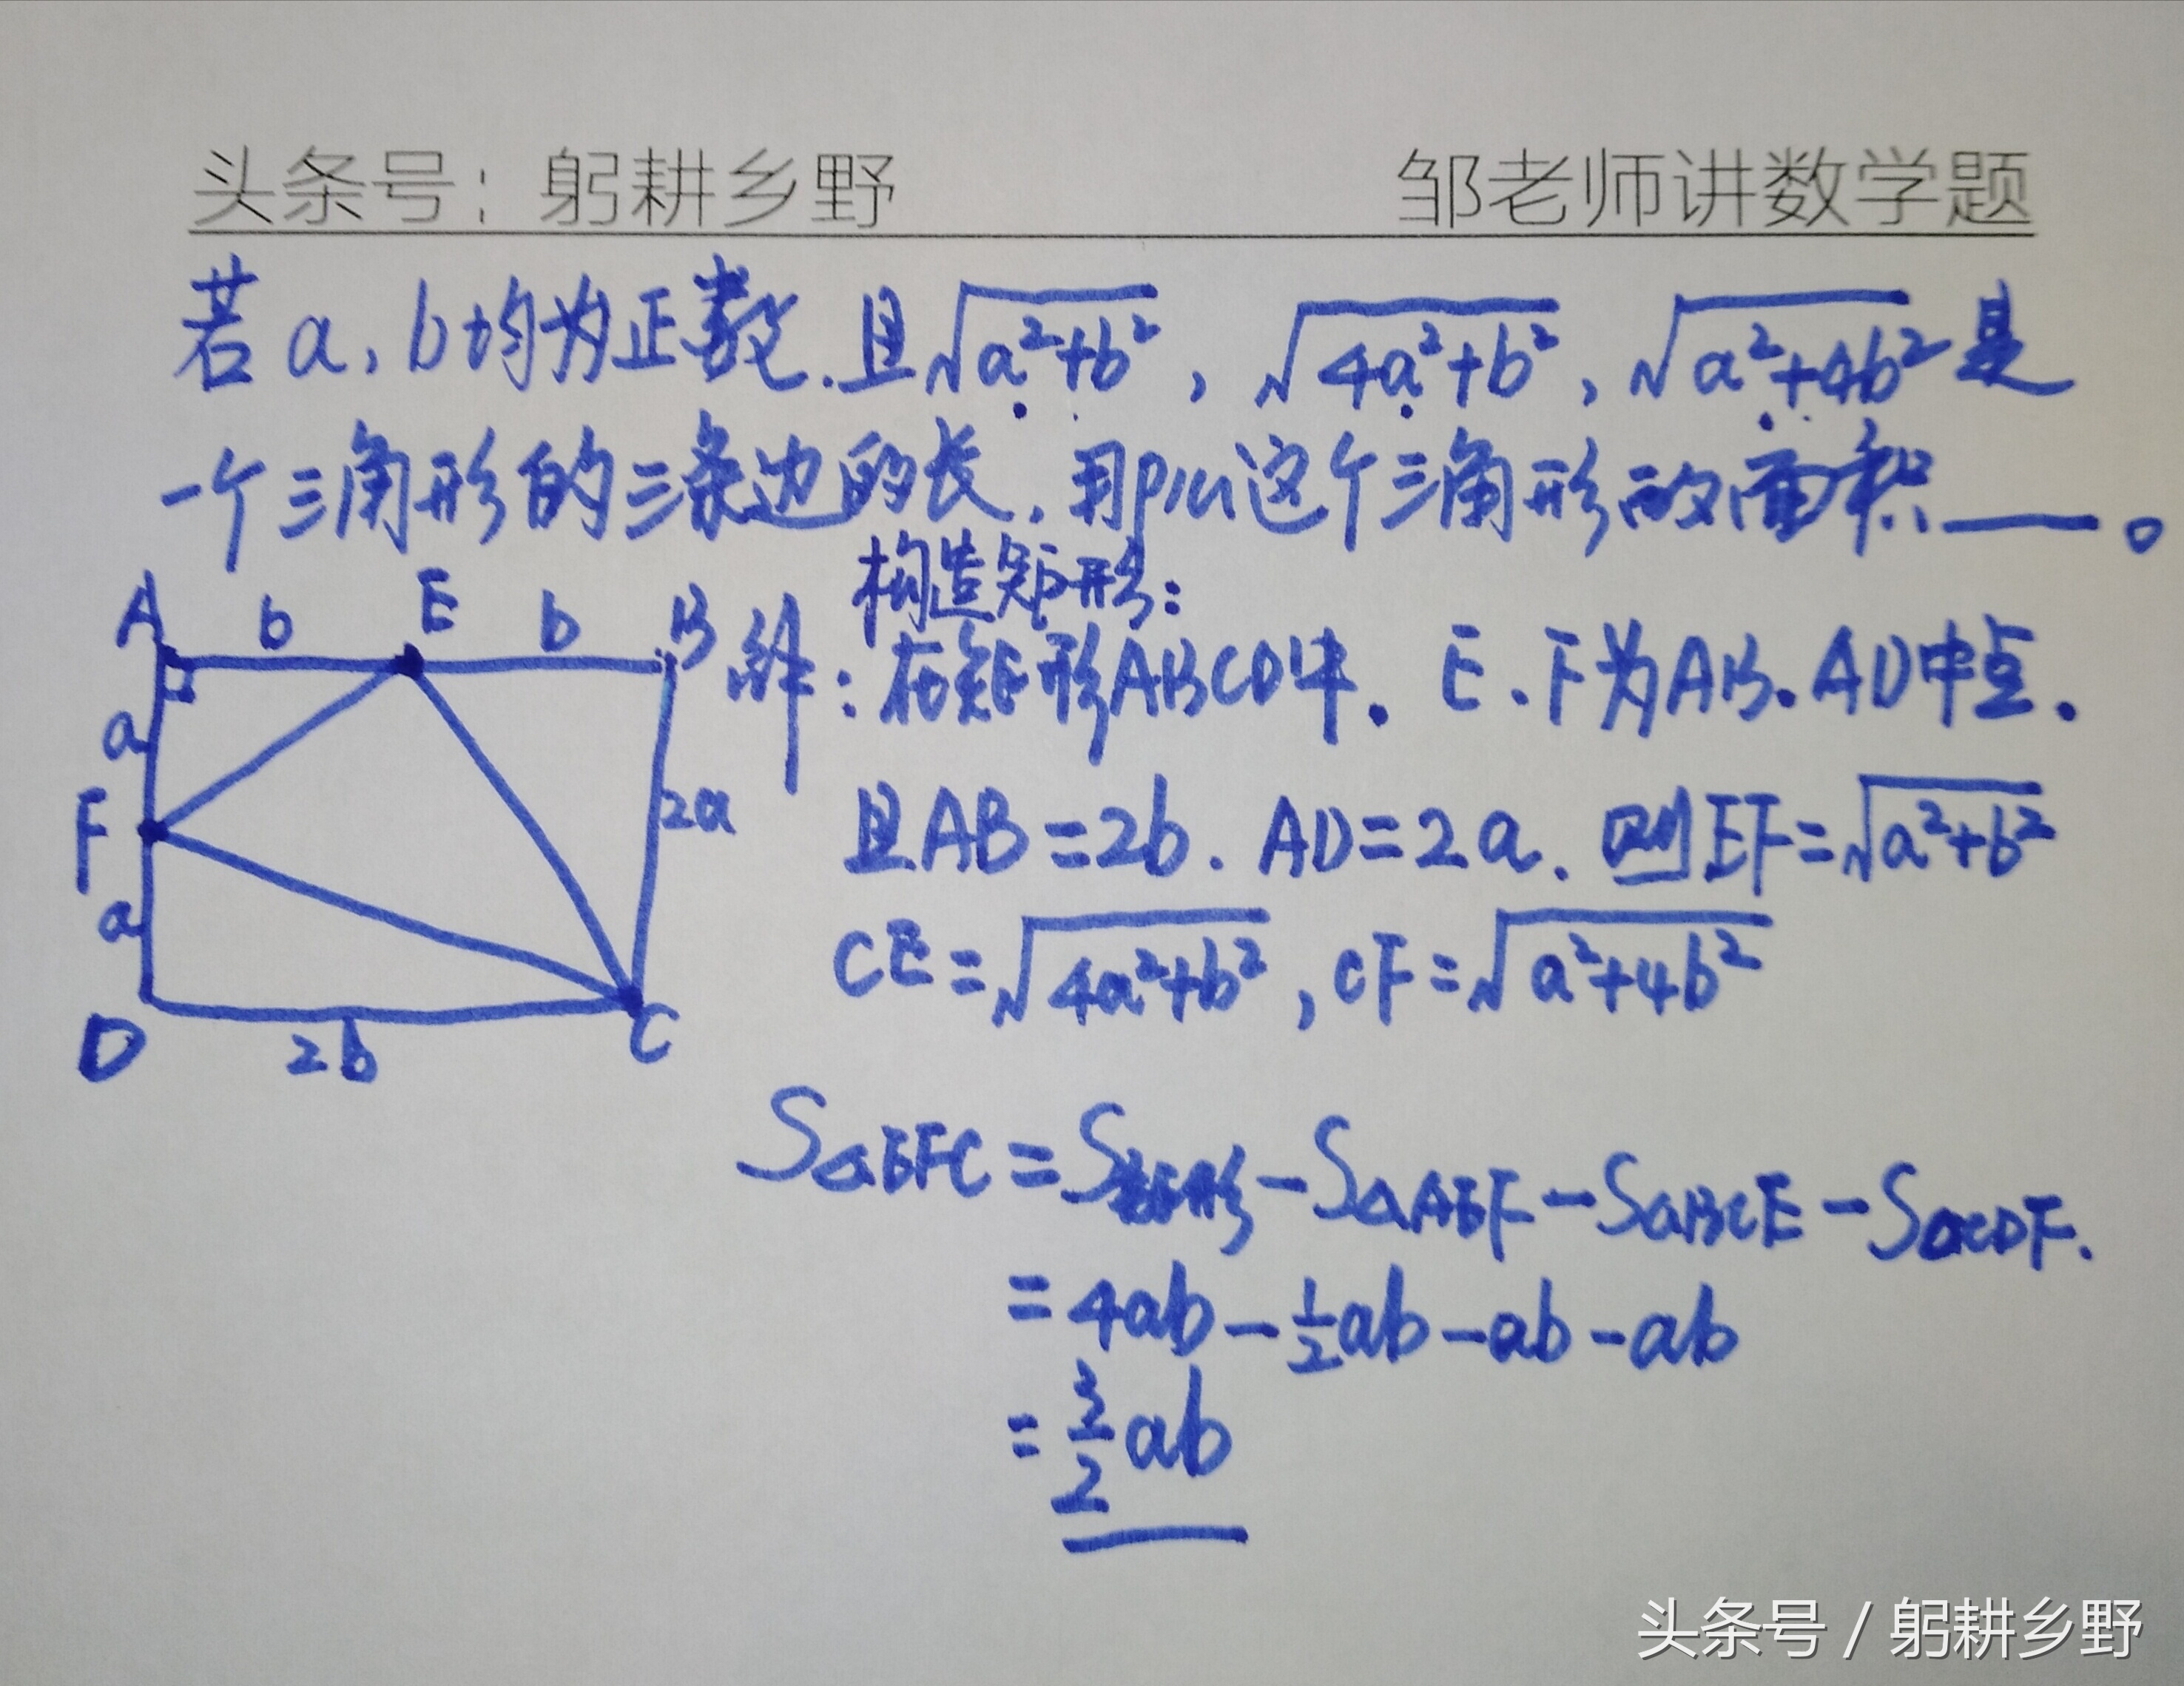 头条号：躬耕乡野 邹老师讲数学题
若a，b均为正数．且√(a²+b²)，√(4a²+b²)，√(a²+4b²)是
一个三角形的三条边的长．那么这个三角形的面积＿＿。
构造矩形：
A b E b B
解：在矩形ABCD中．E．F为AB．AD中点．
a
F 2a
且AB=2b．AD=2a．则EF=√(a²+b²)
a
CE=√(4a²+b²)，CF=√(a²+4b²)
D 2b C
S△EFC=S矩形-S△AEF-S△BCE-S△CDF.
=4ab-½ab-ab-ab
=3/2ab
头条号 / 躬耕乡野